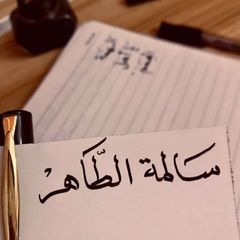 سَالمة الطَّاهرْ